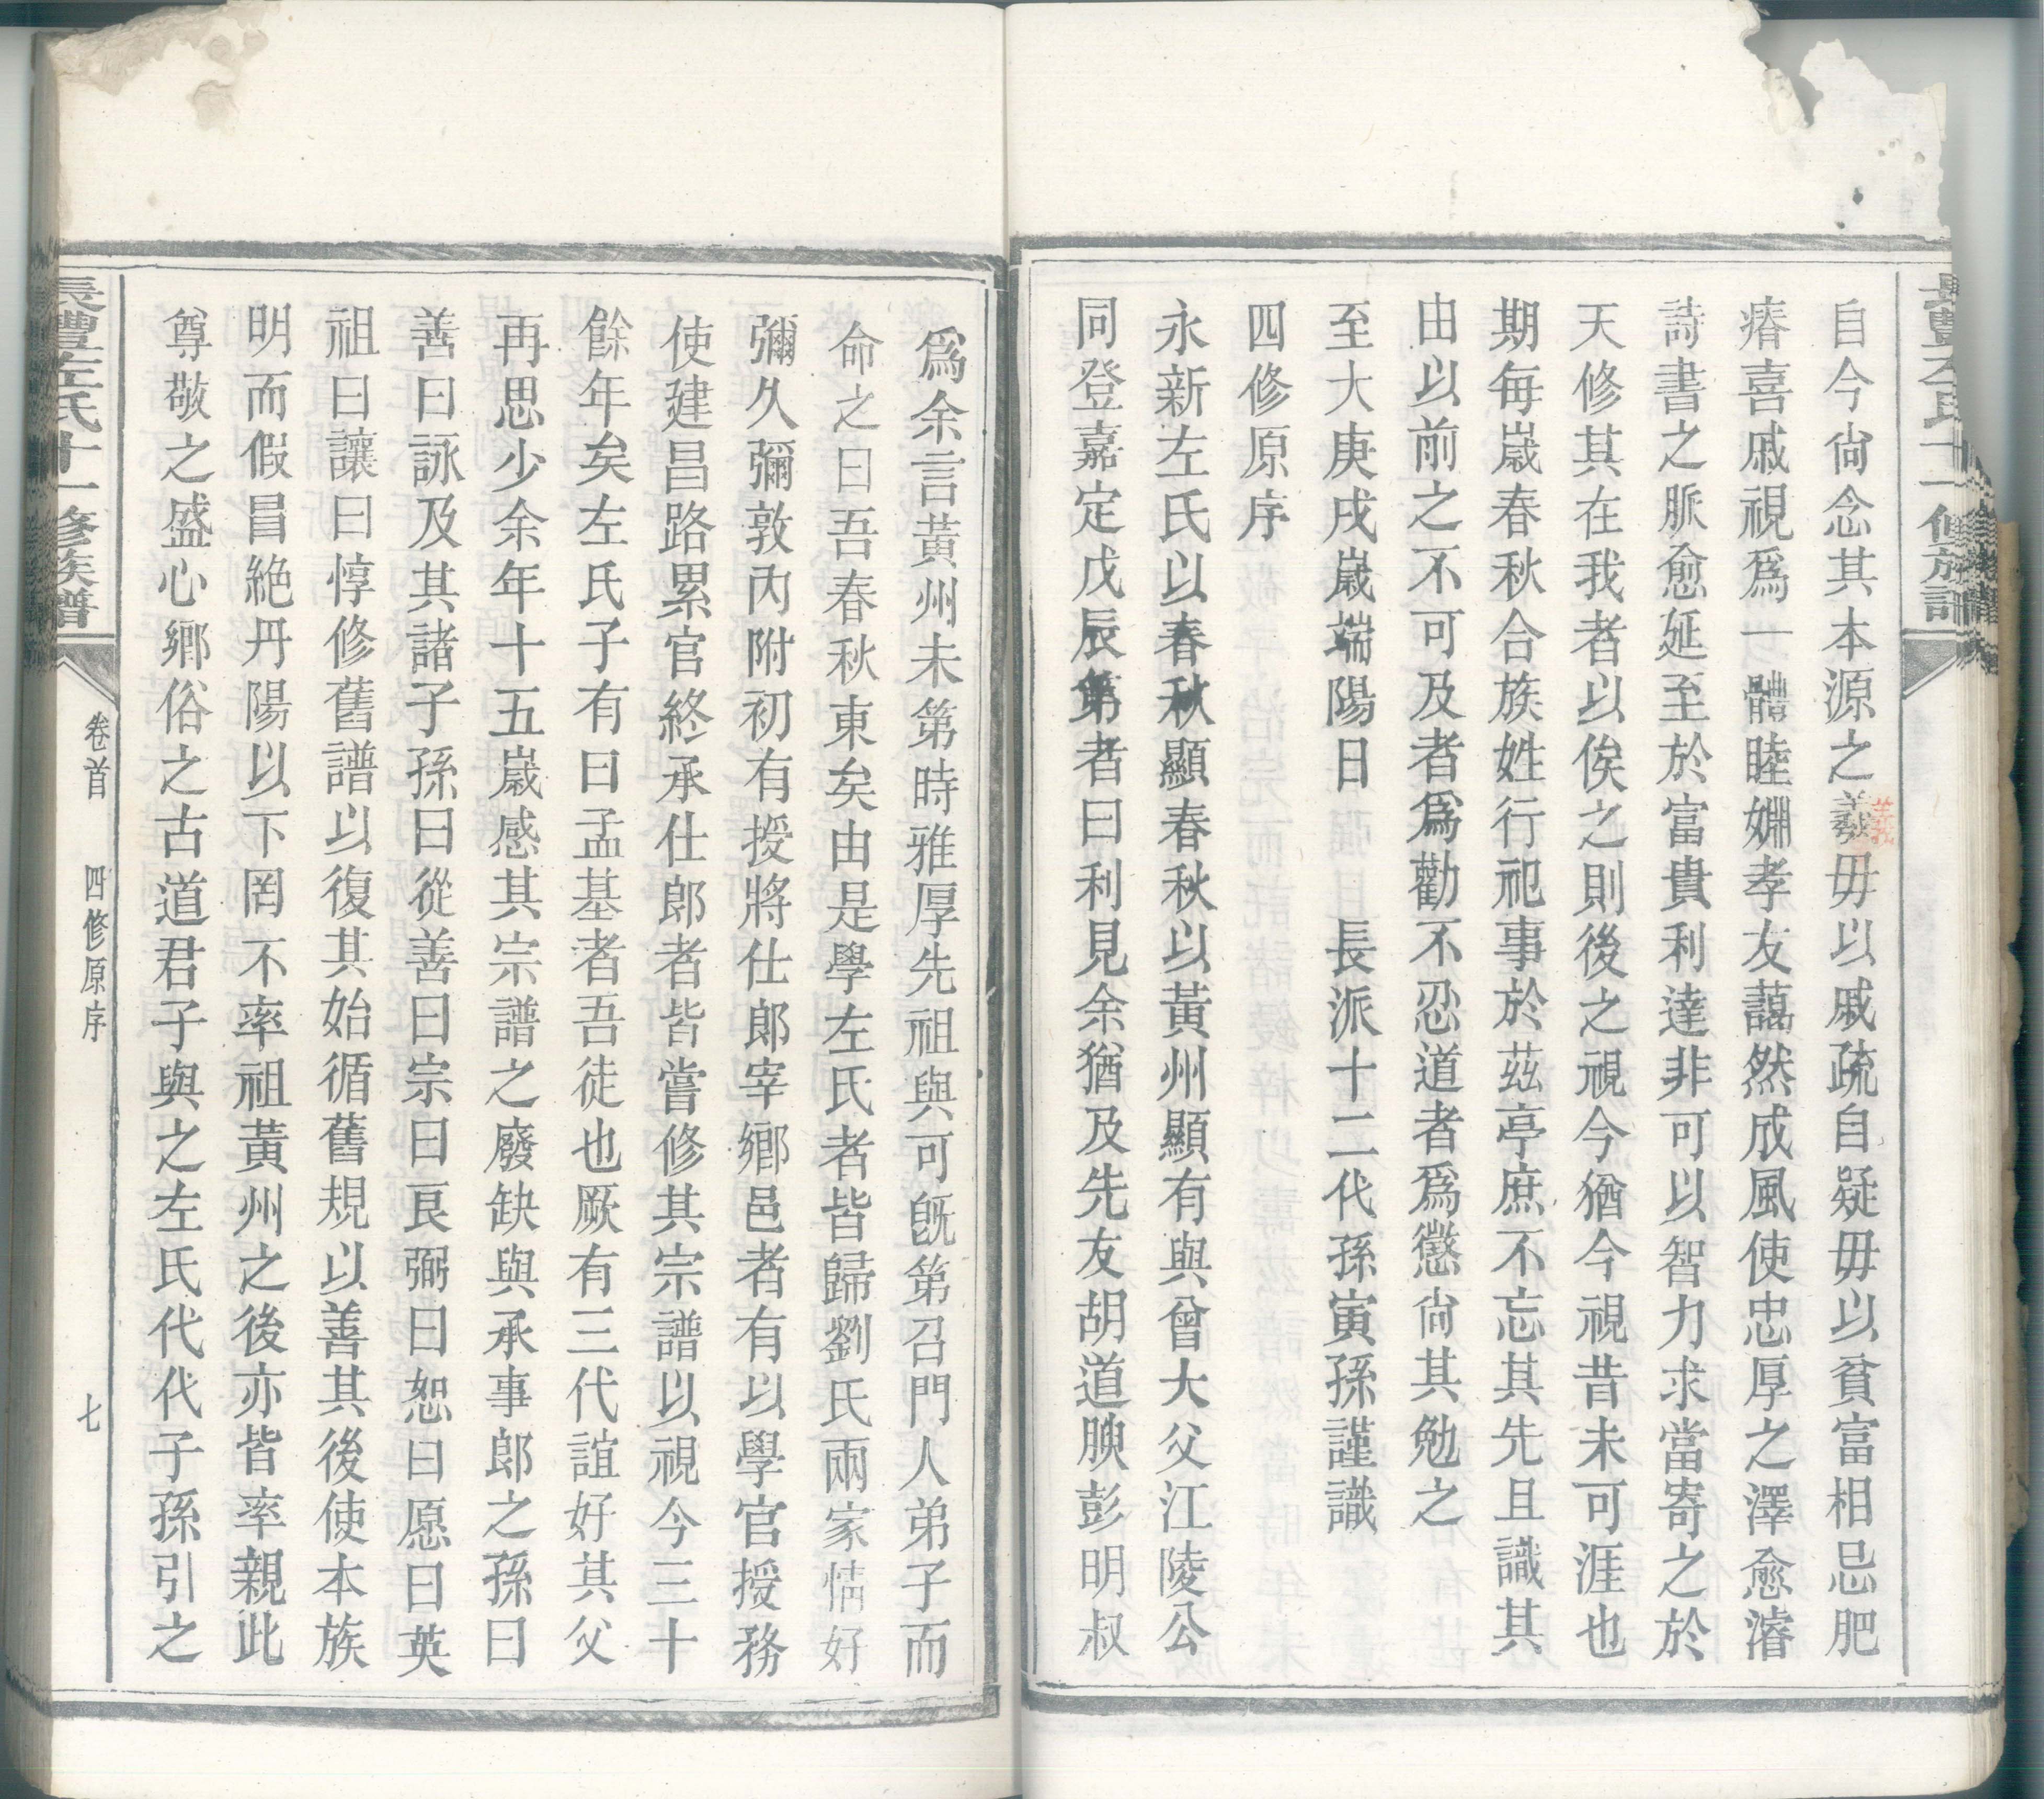 自今尙念其本源之義毋以戚疏自疑毋以貧富相忌肥
瘠喜戚視爲一體睦婣孝友藹然成風使忠厚之澤愈濬
詩書之脈愈延至於富貴利達非可以智力求當寄之於
天修其在我者以俟之則後之視今猶今視昔未可涯也
期每歲春秋合族姓行祀事於茲亭庶不忘其先且識其
由以前之不可及者爲勸不忍道者爲懲尙其勉之
至大庚戌歲端陽日　長派十二代孫寅孫謹識
四修原序
永新左氏以春秋顯春秋以黃州顯有與曾大父江陵公
同登嘉定戊辰第者曰利見余猶及先友胡道腴彭明叔
爲余言黃州未第時雅厚先祖與可旣第召門人弟子而
命之曰吾春秋東矣由是學左氏者皆歸劉氏兩家情好
彌久彌敦內附初有授將仕郎宰鄉邑者有以學官授務
使建昌路累官終承仕郎者皆嘗修其宗譜以視今三十
餘年矣左氏子有曰孟基者吾徒也厥有三代誼好其父
再思少余年十五歲感其宗譜之廢缺與承事郎之孫曰
善曰詠及其諸子孫曰從善曰宗曰良弼曰恕曰愿曰英
祖曰讓曰惇修舊譜以復其始循舊規以善其後使本族
明而假冒絶丹陽以下罔不率祖黃州之後亦皆率親此
尊敬之盛心鄉俗之古道君子與之左氏代代子孫引之
長澧左氏十一修族譜
卷首　四修原序
七